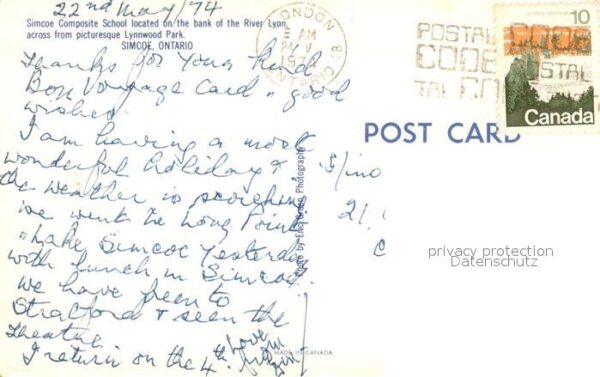 22nd May/74
Simcoe Composite School located on the bank of the River Lynn,
across from picturesque Lynnwood Park.
SIMCOE, ONTARIO
Thanks for Your kind
Bon Voyage Card & good
wishes.
I am having a most
wonderful holiday &
the weather is scorching
we went to Long Point
& Lake Simcoe Yesterday
with lunch in Simcoe.
we have been to
Stratford & seen the
theatre.
I return on the 4th.
Love from
LONDON
AM
1974
ONTARIO
POSTAL CODE
CODE POSTAL
10
Canada
POST CARD
21,
Photo by Photography
MADE IN CANADA
privacy protection
Datenschutz